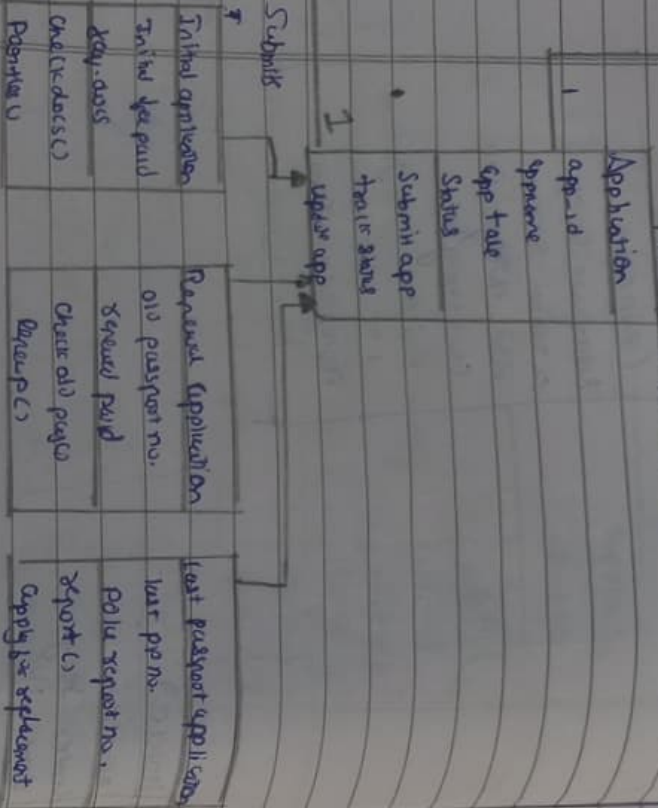 1
Application
app-id
appname
Status
Submit app
track status
update app
1
Submits
*
Initial application
Initial fee paid
check docs()
Renewal application
old passport no.
renewal paid
check old
Renewp()
Lost passport application
lost pp no.
Police report no.
report()
apply for replacement